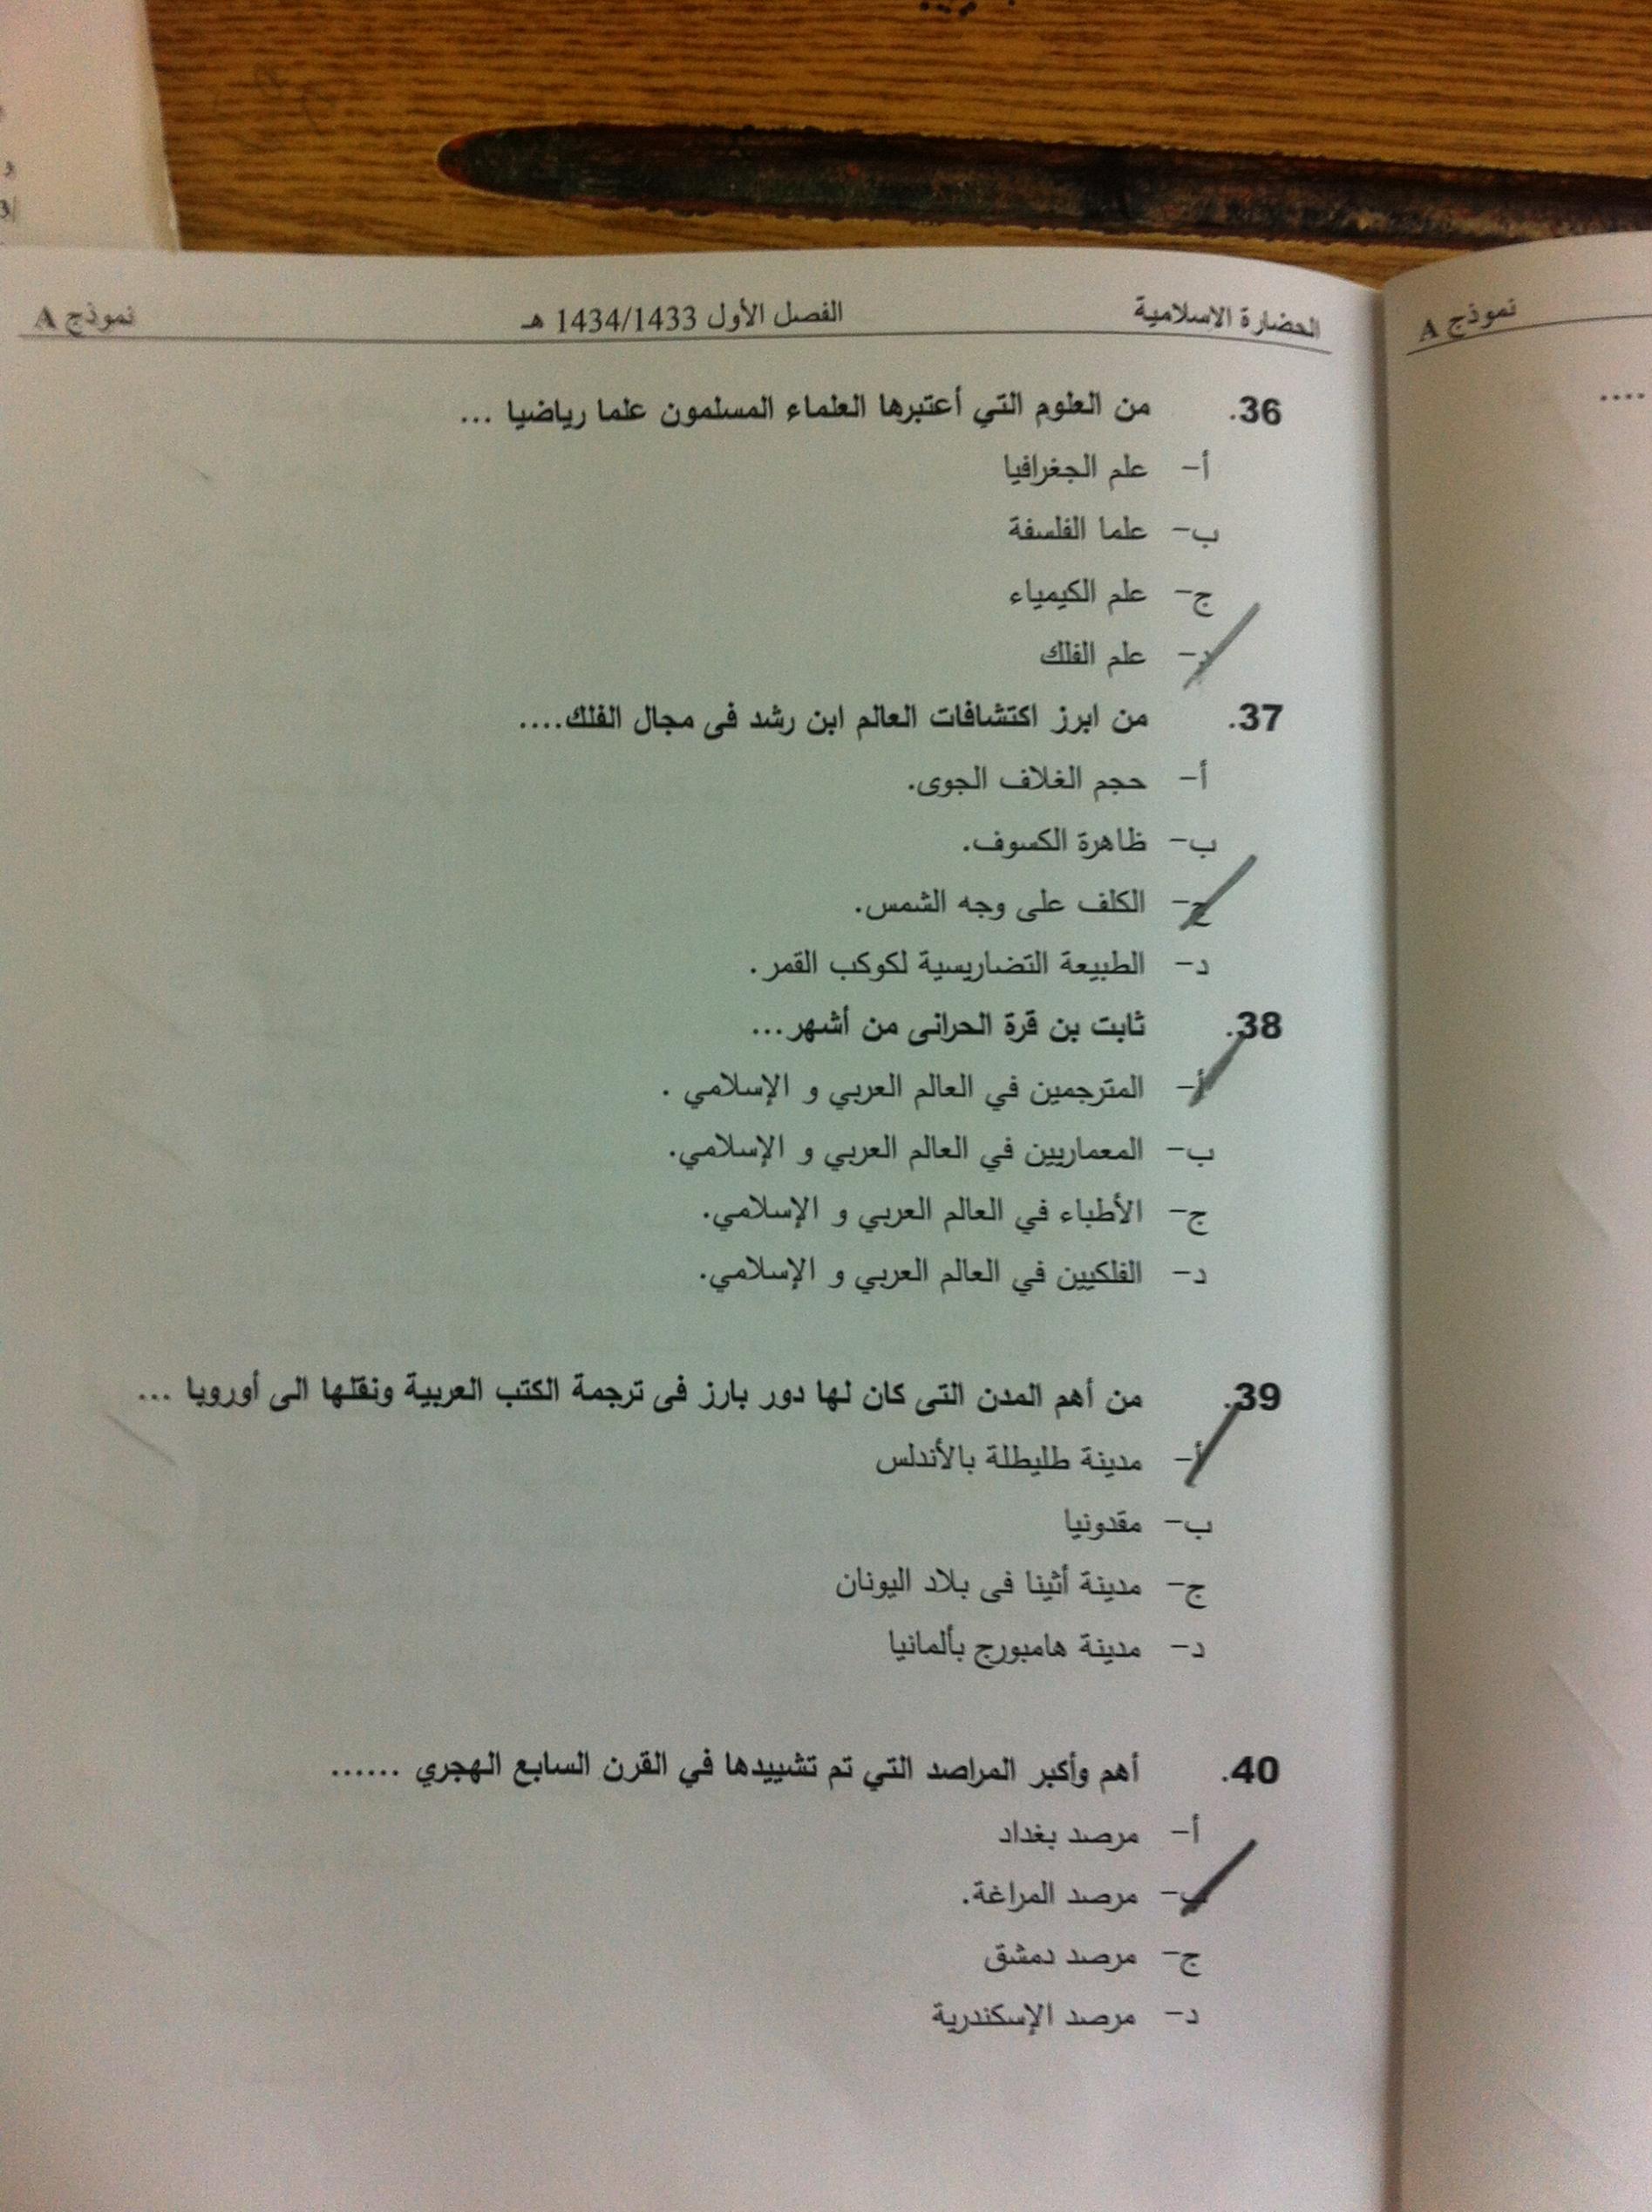 الحضارة الاسلامية الفصل الأول 1434/1433 هـ نموذج A
36. من العلوم التي أعتبرها العلماء المسلمون علما رياضيا ...
أ- علم الجغرافيا
ب- علما الفلسفة
ج- علم الكيمياء
د- علم الفلك
37. من ابرز اكتشافات العالم ابن رشد فى مجال الفلك....
أ- حجم الغلاف الجوى.
ب- ظاهرة الكسوف.
ج- الكلف على وجه الشمس.
د- الطبيعة التضاريسية لكوكب القمر.
38. ثابت بن قرة الحرانى من أشهر...
أ- المترجمين في العالم العربي و الإسلامي .
ب- المعماريين في العالم العربي و الإسلامي.
ج- الأطباء في العالم العربي و الإسلامي.
د- الفلكيين في العالم العربي و الإسلامي.
39. من أهم المدن التى كان لها دور بارز فى ترجمة الكتب العربية ونقلها الى أوروبا ...
أ- مدينة طليطلة بالأندلس
ب- مقدونيا
ج- مدينة أثينا فى بلاد اليونان
د- مدينة هامبورج بألمانيا
40. أهم وأكبر المراصد التي تم تشييدها في القرن السابع الهجري ......
أ- مرصد بغداد
ب- مرصد المراغة.
ج- مرصد دمشق
د- مرصد الإسكندرية
نموذج A
....